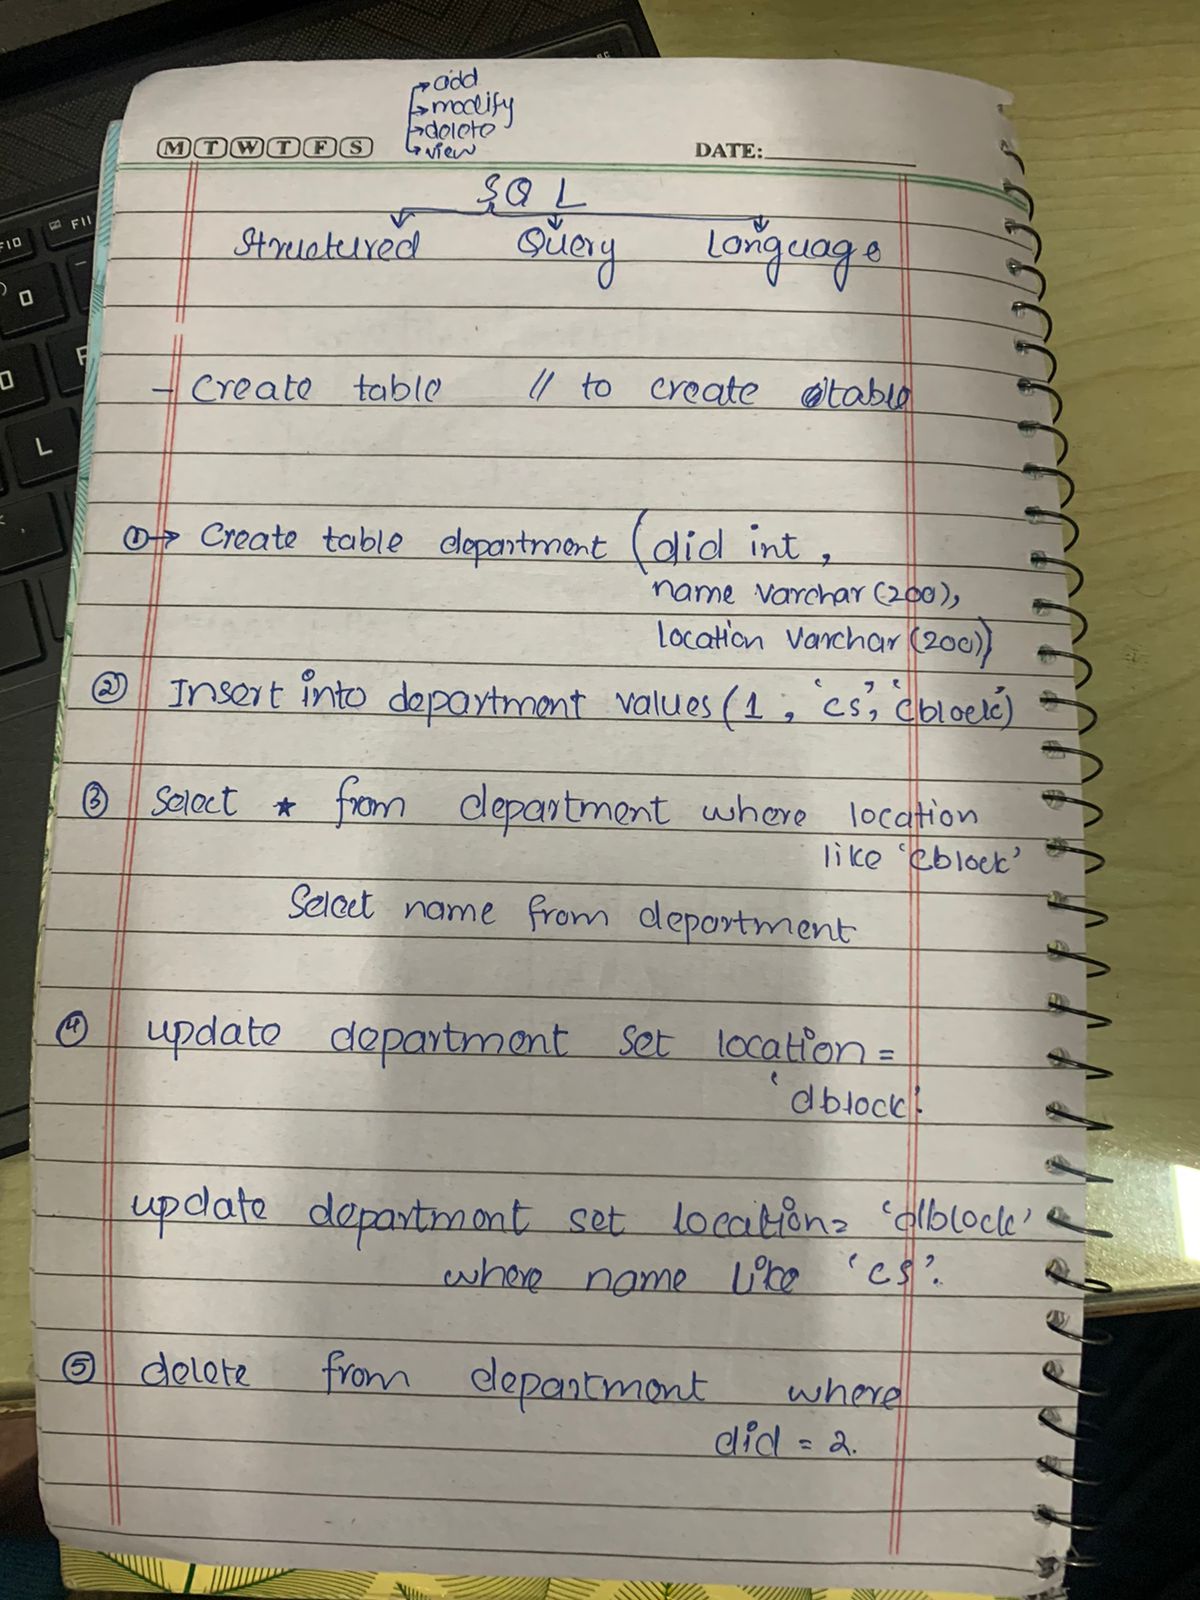 add
modify
delete
view
M T W T F S
DATE:
SQL
Structured Query Language
- Create table // to create table
① → Create table department (did int,
name varchar (200),
location varchar (200))
② Insert into department values (1, 'cs', 'cblock')
③ Select * from department where location
like 'cblock'
Select name from department
④ update department set location =
'dblock'.
update department set location = 'dblock'
where name like 'cs'.
⑤ delete from department where
did = 2.
F10
F11
L